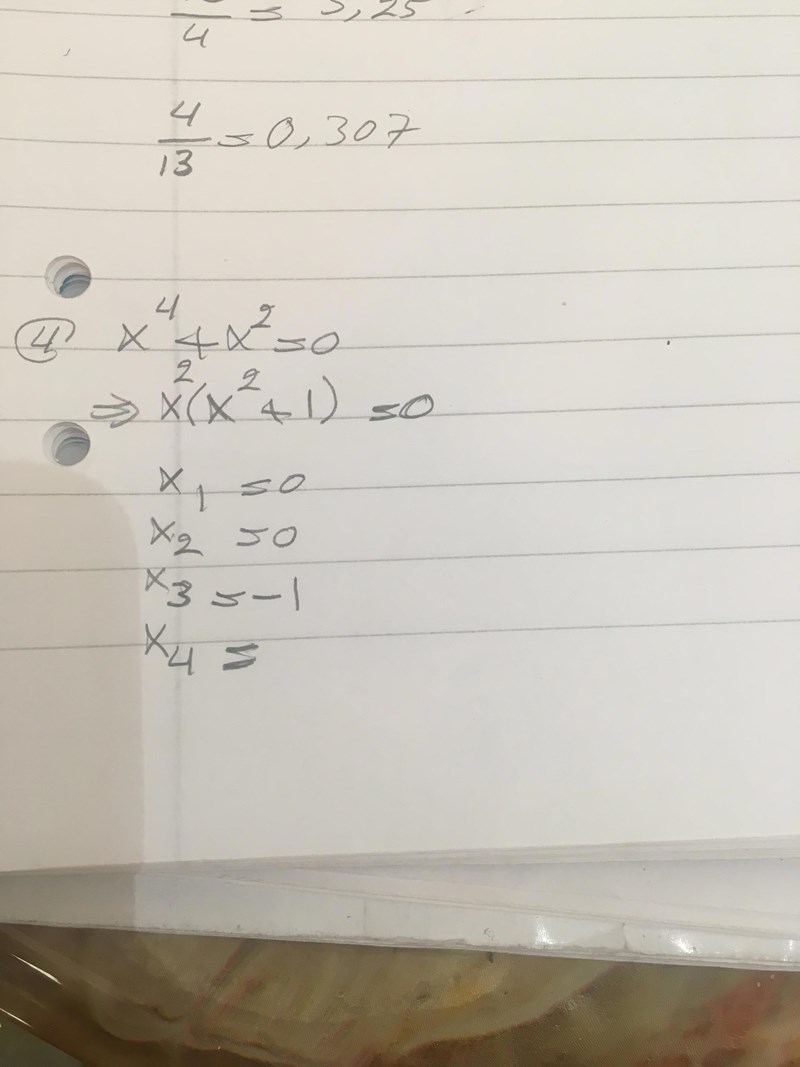 4 = 3,25
4/13 = 0,307
④ x⁴ + x² = 0
⇒ x²(x² + 1) = 0
x₁ = 0
x₂ = 0
x₃ = -1
x₄ =